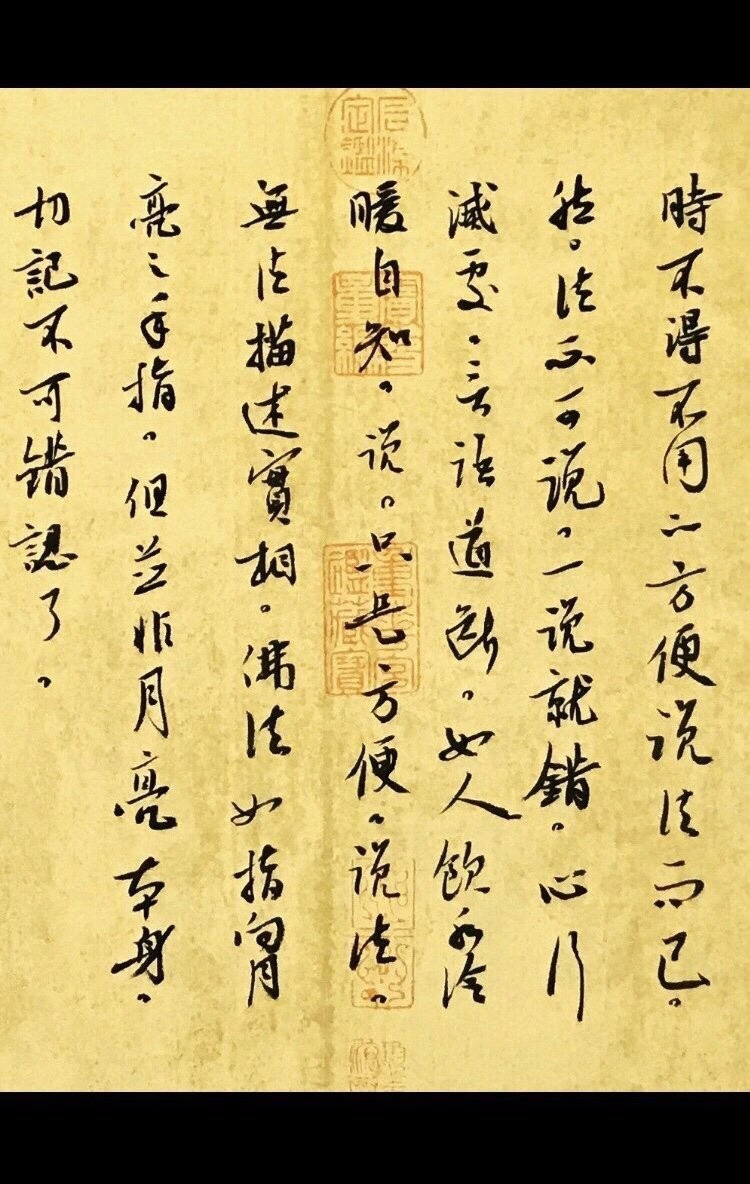 時不得不用之方便说法而已。
然。法不可说。一说就錯。心行
滅處。言语道斷。如人飲水冷
暖自知。说。只是方便。说法。
無法描述實相。佛法如指向月
亮之手指。但並非月亮本身。
切記不可錯認了。